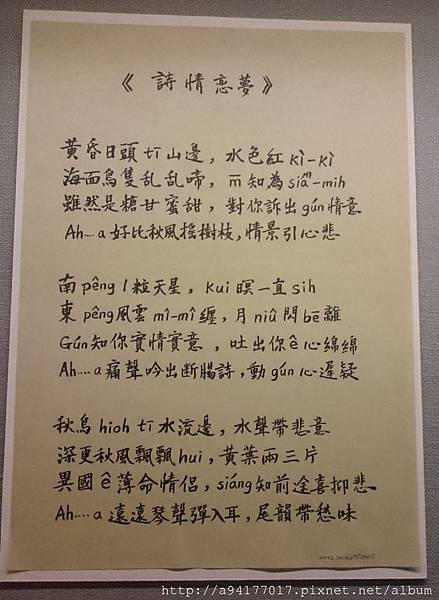 《詩情恋夢》
黃昏日頭 tī 山邊，水色紅 kì-kì
海面鳥隻乱乱啼，m̄ 知為 siáⁿ-mih
雖然是糖甘蜜甜，對你訴出 gún 情意
Ah....a 好比秋風搖樹枝，情景引心悲
南 pêng 1 粒天星，Kui 暝一直 sih
東 pêng 風雲 mî-mî 纏，月 niû 問 bē 離
Gún 知你實情實意，吐出你 ê 心綿綿
Ah....a 痛聲吟出断腸詩，動 gún 心遲疑
秋鳥 hioh tī 水流邊，水聲帶悲意
深更秋風飄飄 hui，黃葉兩三片
異國 ê 薄命情侶，siáng 知前途喜抑悲
Ah....a 遠遠琴聲彈入耳，尾韻帶愁味
http://a94177017.pixnet.net/album